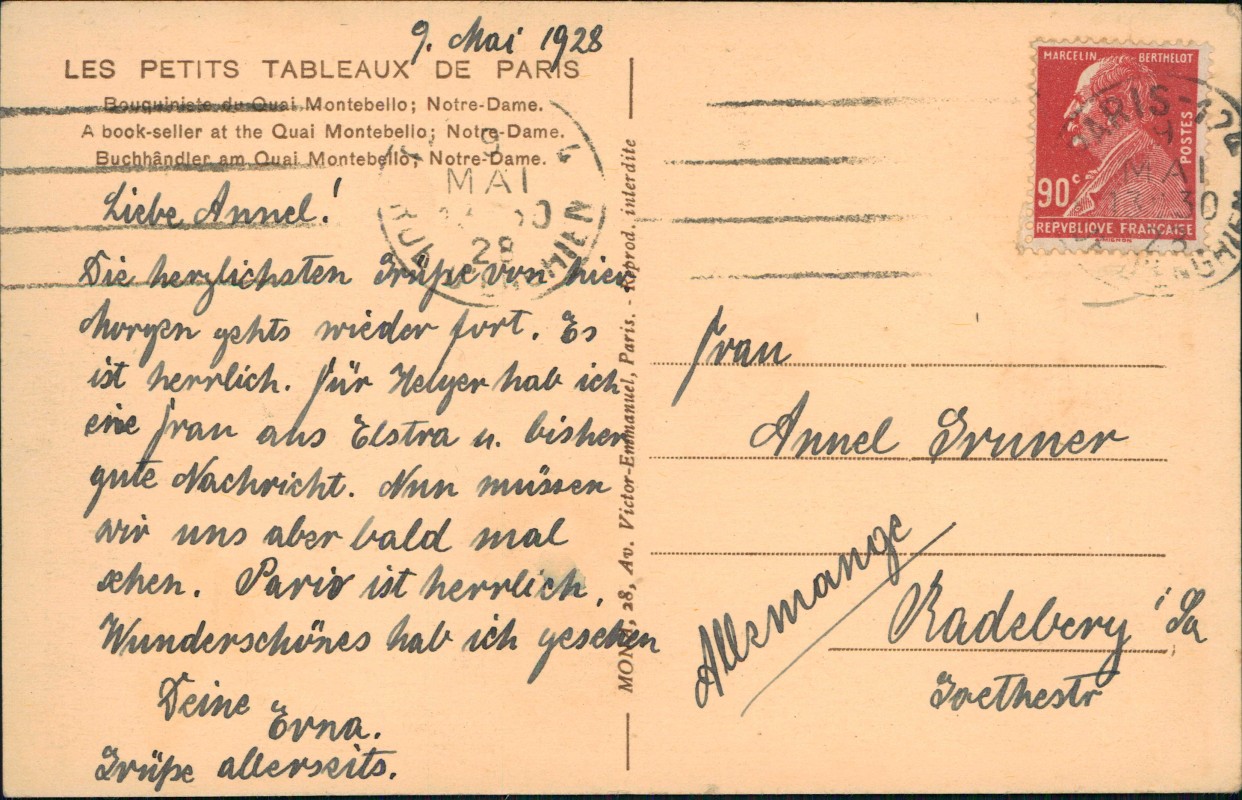 9. Mai 1928
LES PETITS TABLEAUX DE PARIS
Bouquiniste du Quai Montebello; Notre-Dame.
A book-seller at the Quai Montebello; Notre-Dame.
Buchhändler am Quai Montebello; Notre-Dame.
Liebe Annel!
Die herzlichsten Grüße von hier
Morgen gehts wieder fort. Es
ist herrlich. Für Helger hab ich
eine Frau aus Elstra u. bisher
gute Nachricht. Nun müssen
wir uns aber bald mal
sehen. Paris ist herrlich,
Wunderschönes hab ich gesehen
Deine
Erna.
Grüße allerseits.
9
MAI
28
MONA, 28, Av. Victor-Emmanuel, Paris. - Reprod. interdite
MARCELIN BERTHELOT
POSTES
90c
REPVBLIQUE FRANÇAISE
PARIS-124
9
MAI
30
28
Frau
Annel Gruner
Allemange
Radeberg i Sa
Goethestr